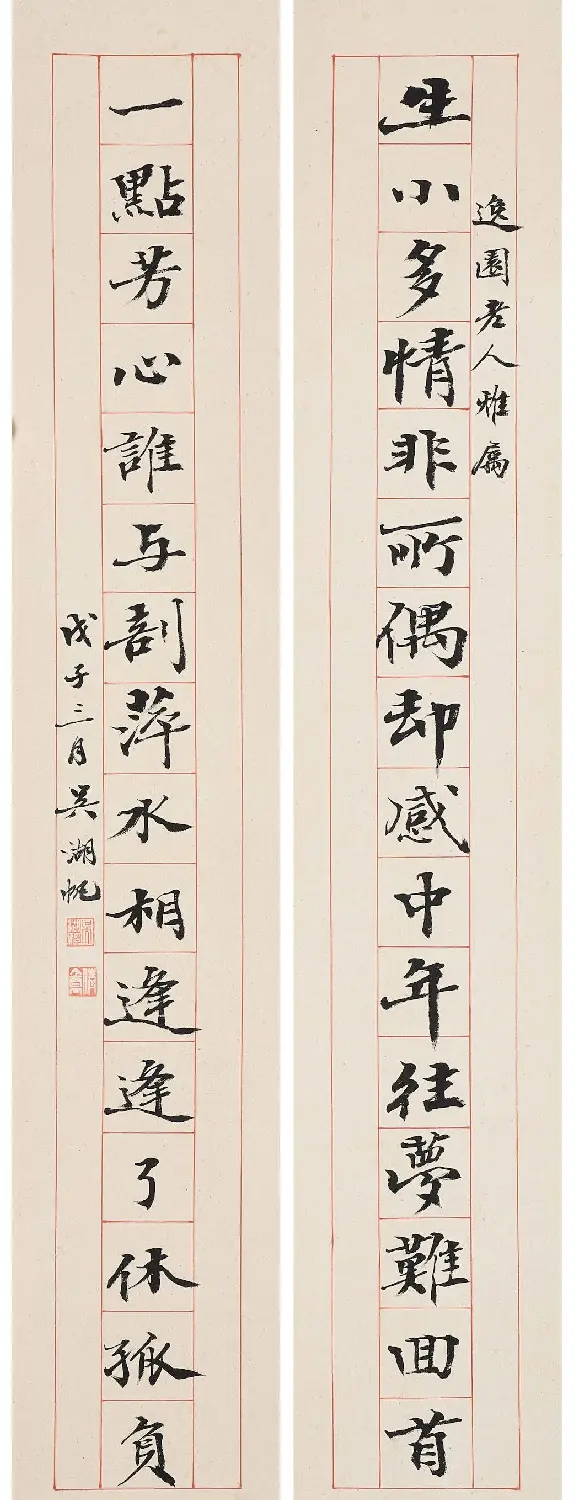 逸園老人雅屬
生小多情非所偶却感中年往夢難回首
一點芳心誰与剖萍水相逢逢了休孤負
戊子三月吳湖帆